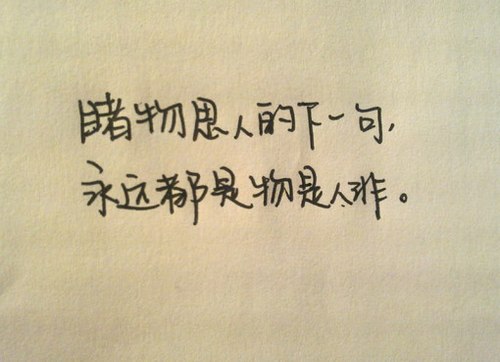 睹物思人的下一句,
永远都是物是人非。